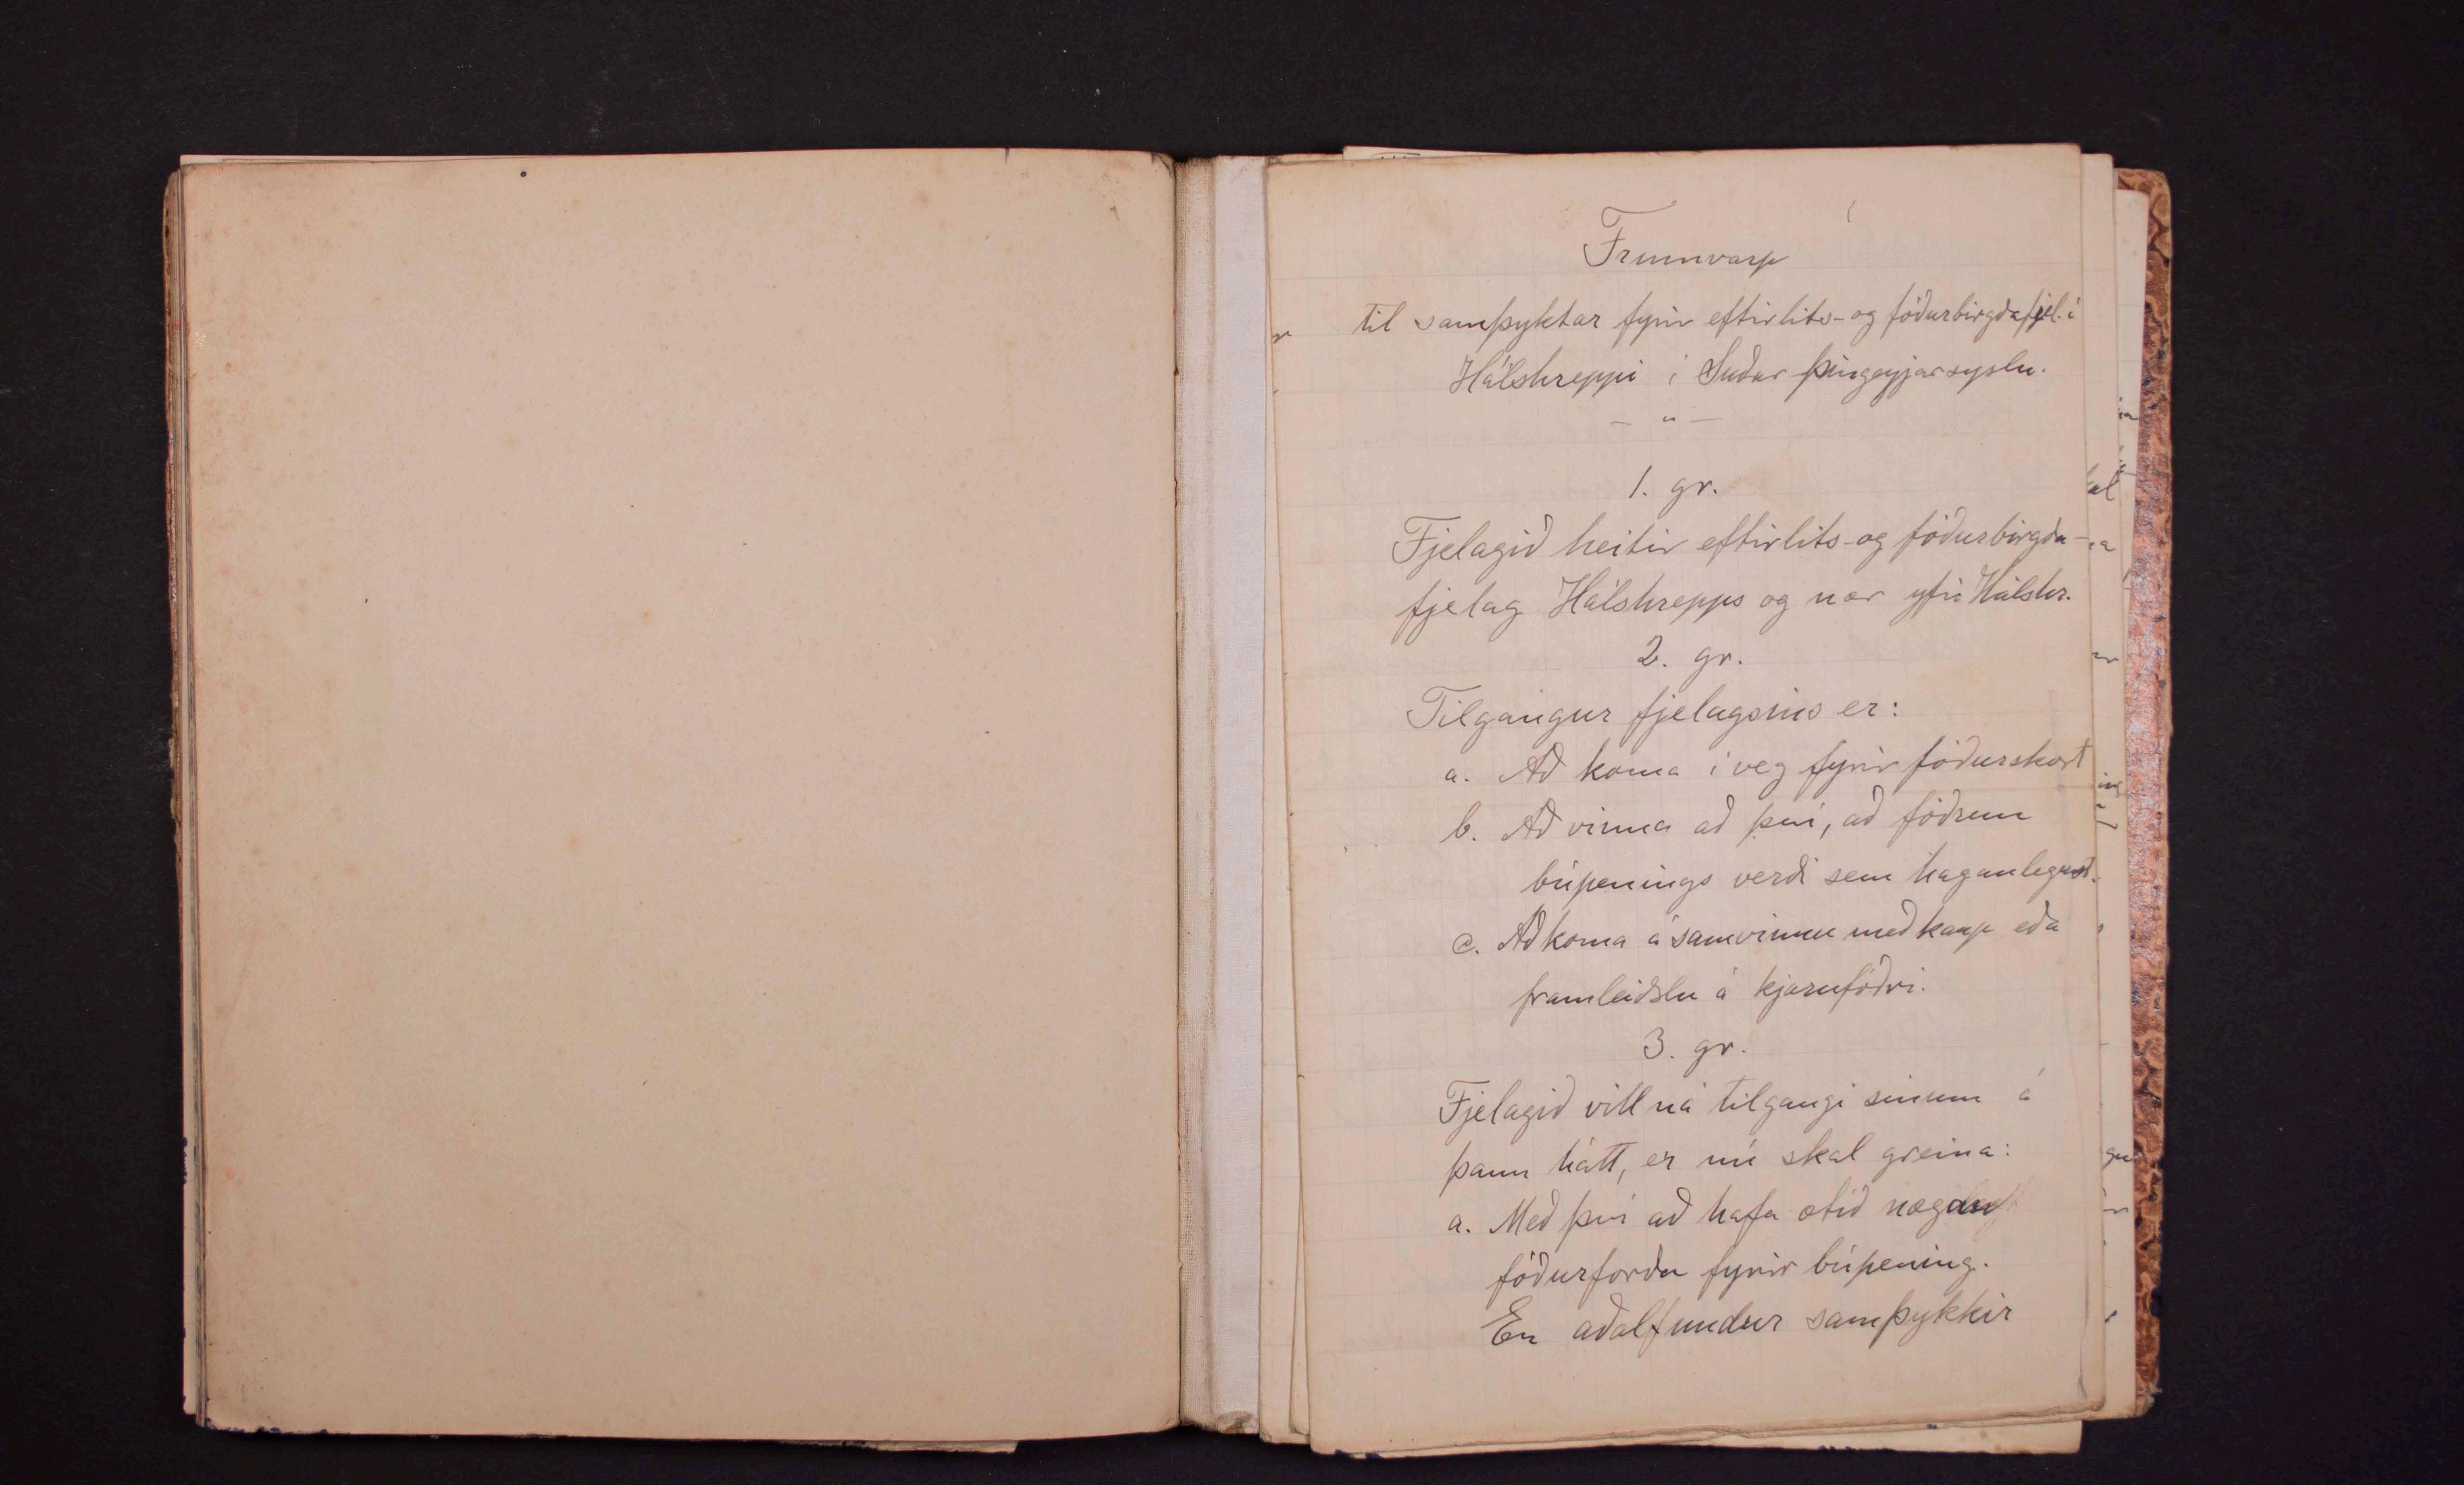 Frumvarp
til samþyktar fyrir eftirlits- og fóðurbirgðafjel. í
Hálshreppi í Suður þingeyjarsyslu.
— " —
1. gr.
Fjelagið heitir eftirlits- og fóðurbirgða-
fjelag Hálshrepps og nær yfir Hálshr.
2. gr.
Tilgangur fjelagsins er:
a. Að koma í veg fyrir fóðurskort
b. Að vinna að því, að fóðrun
búpenings verði sem haganlegust.
c. Að koma á samvinnu með kaup eða
framleiðslu á kjarnfóðri.
3. gr.
Fjelagið vill ná tilgangi sínum á
þann hátt, er nú skal greina:
a. Með því að hafa ætíð nægan
fóðurforða fyrir búpening.
En aðalfundur samþykkir